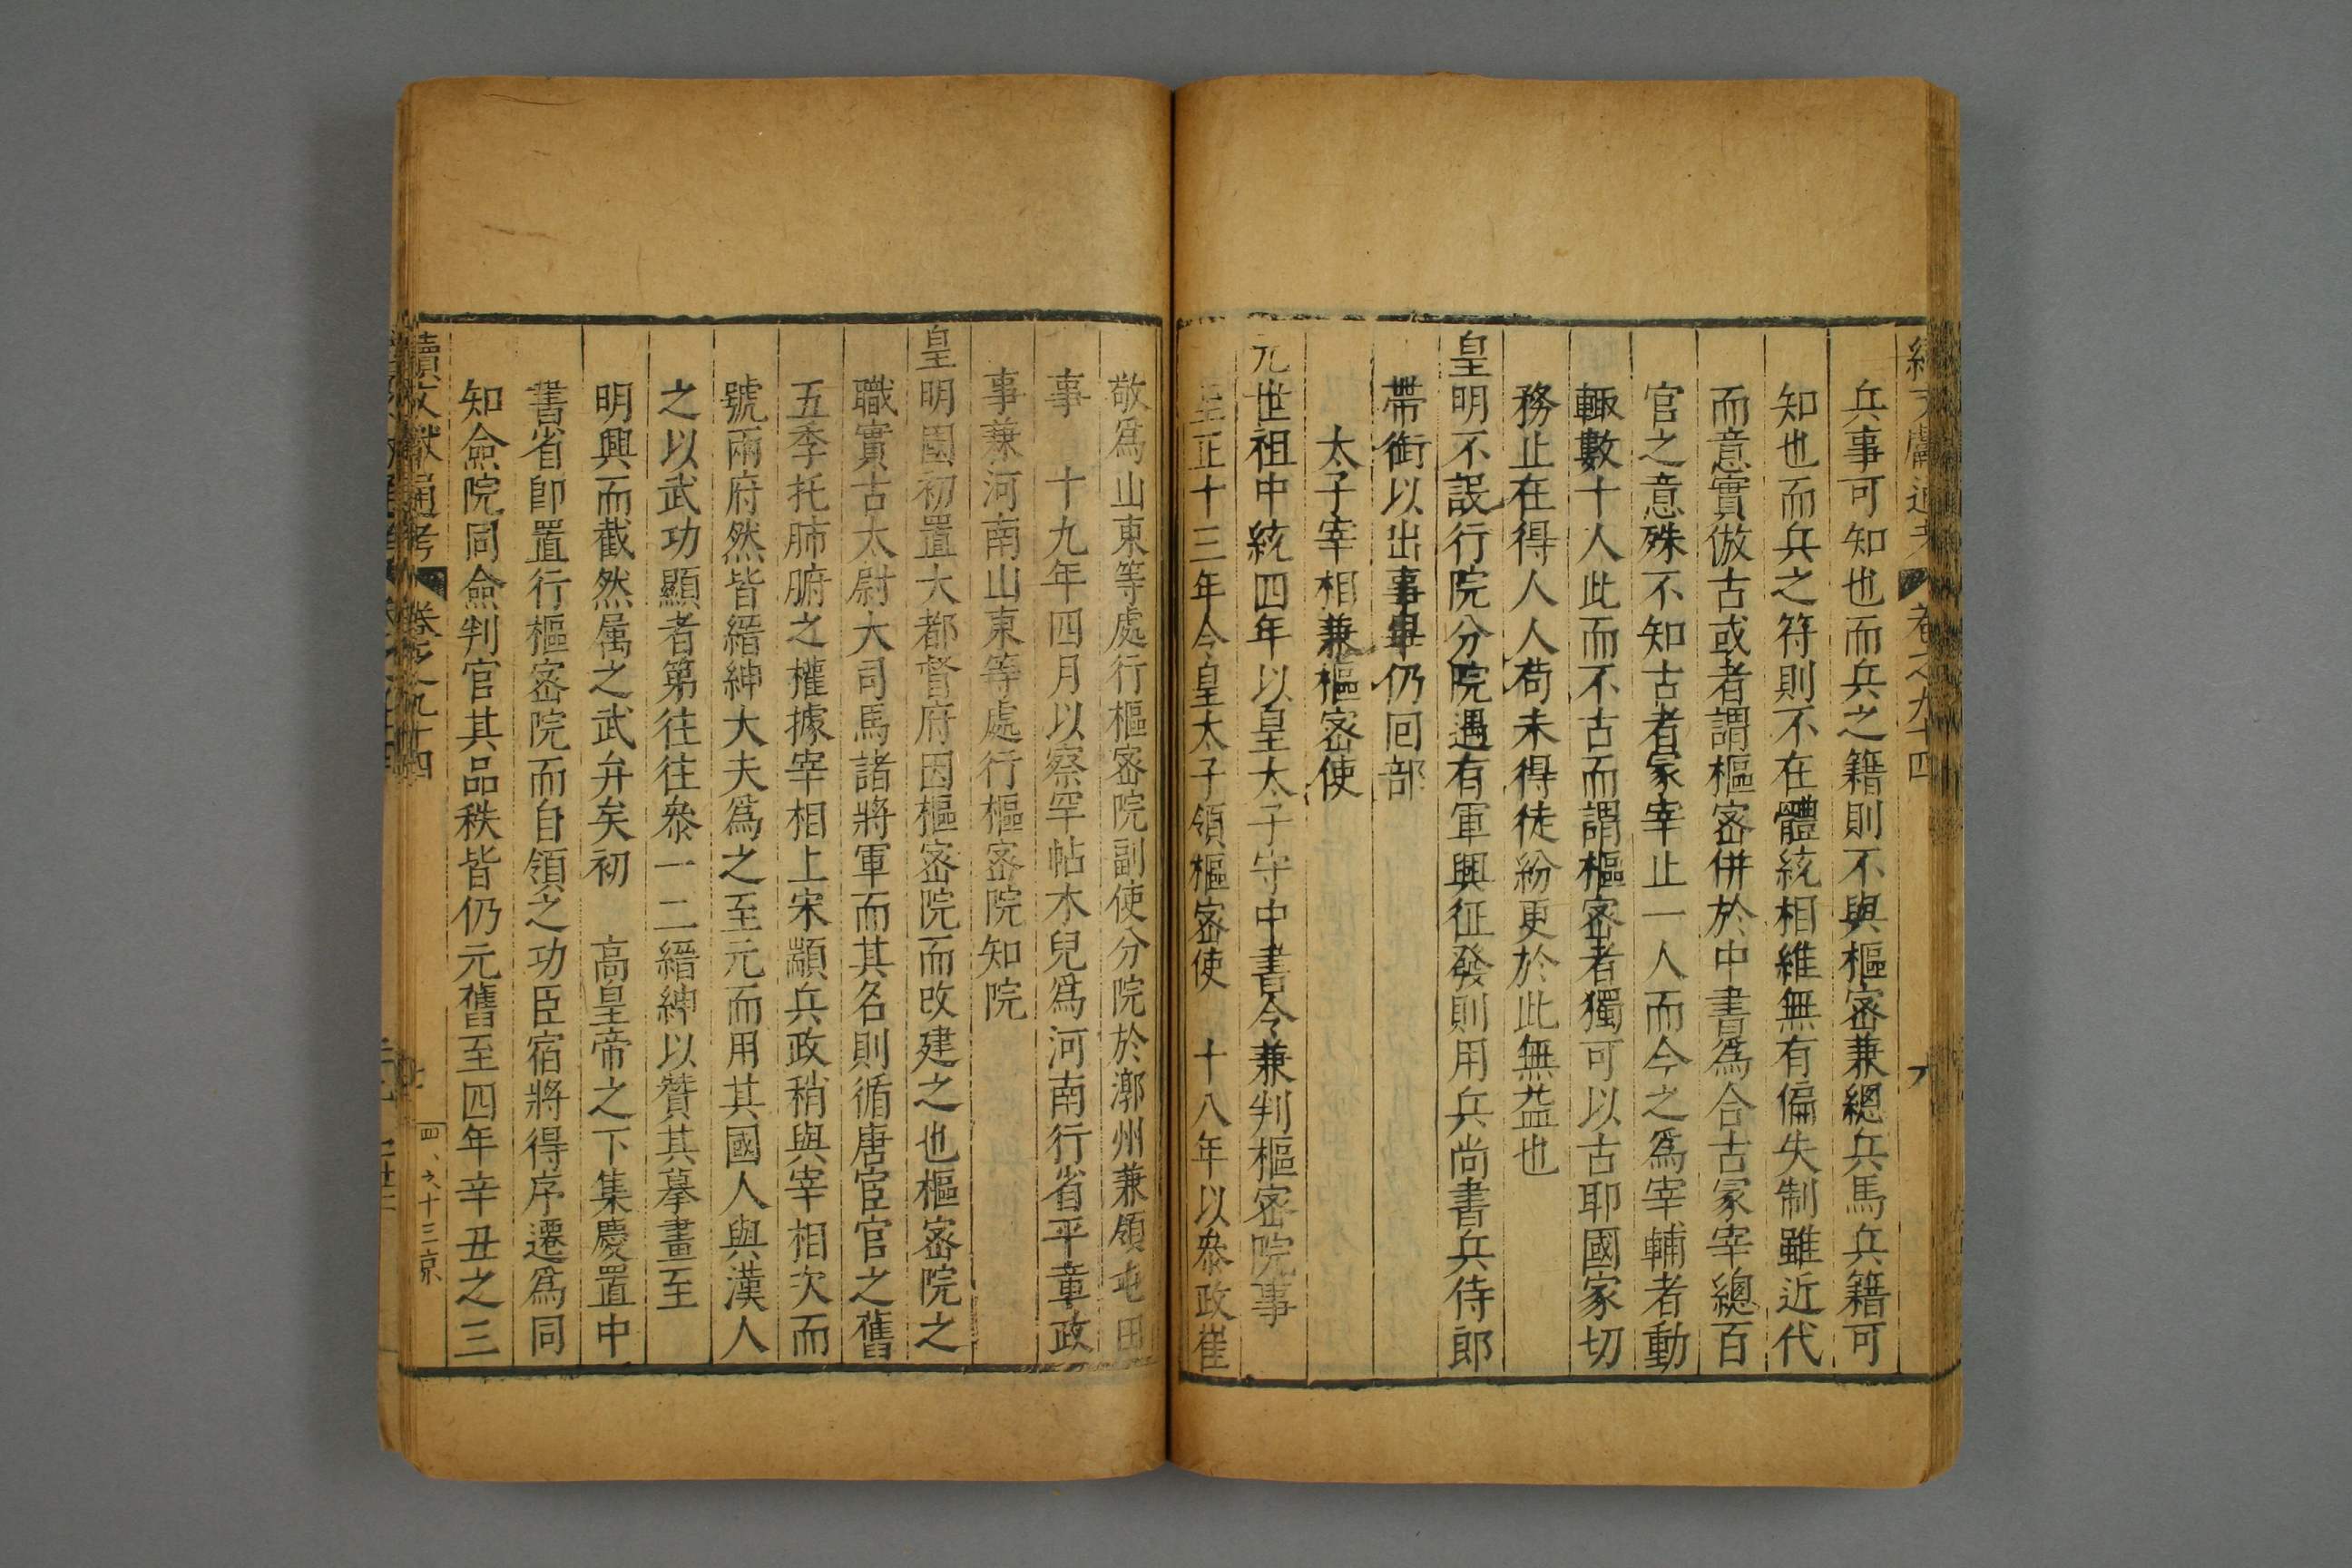 兵事可知也而兵之籍則不與樞密兼總兵馬兵籍可
知也而兵之符則不在體統相維無有偏失制雖近代
而意實倣古或者謂樞密併於中書爲合古冢宰總百
官之意殊不知古者冢宰止一人而今之爲宰輔者動
輒數十人此而不古而謂樞密者獨可以古耶國家切
務止在得人人苟未得徒紛更於此無益也
皇明不設行院分院遇有軍興征發則用兵尚書兵侍郎
帶銜以出事畢仍回部
太子宰相兼樞密使
元世祖中統四年以皇太子守中書令兼判樞密院事
至正十三年令皇太子領樞密使　十八年以叅政崔
敬爲山東等處行樞密院副使分院於漷州兼領屯田
事　十九年四月以察罕帖木兒爲河南行省平章政
事兼河南山東等處行樞密院知院
皇明國初置大都督府因樞密院而改建之也樞密院之
職實古太尉大司馬諸將軍而其名則循唐宦官之舊
五季托肺腑之權據宰相上宋顓兵政稍與宰相次而
號兩府然皆縉紳大夫爲之至元而用其國人與漢人
之以武功顯者第往往叅一二縉紳以贊其摹畫至
明興而截然属之武弁矣初　高皇帝之下集慶置中
書省卽置行樞密院而自領之功臣宿將得序遷爲同
知僉院同僉判官其品秩皆仍元舊至四年辛丑之三
續文獻通考　卷之九十四